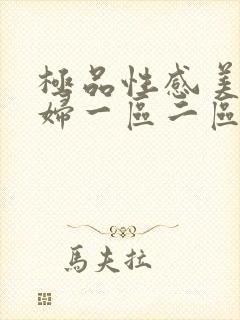 極品性感美
婦一區二區
馬夫拉